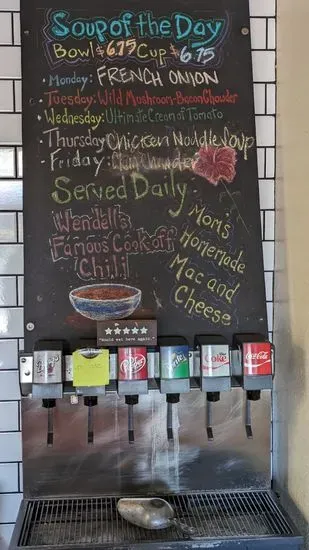 Soup of the Day
Bowl $6.75 Cup $6.75
Monday: FRENCH ONION
Tuesday: Wild Mushroom-Bacon Chowder
Wednesday: Ultimate Cream of Tomato
Thursday Chicken Noddle Soup
Friday: Clam Chowder
Served Daily
Wendell's
Famous Cook off
Chili
Mom's
Homemade
Mac and
Cheese
"Would eat here again."
Dr Pepper
Coke
Coca-Cola